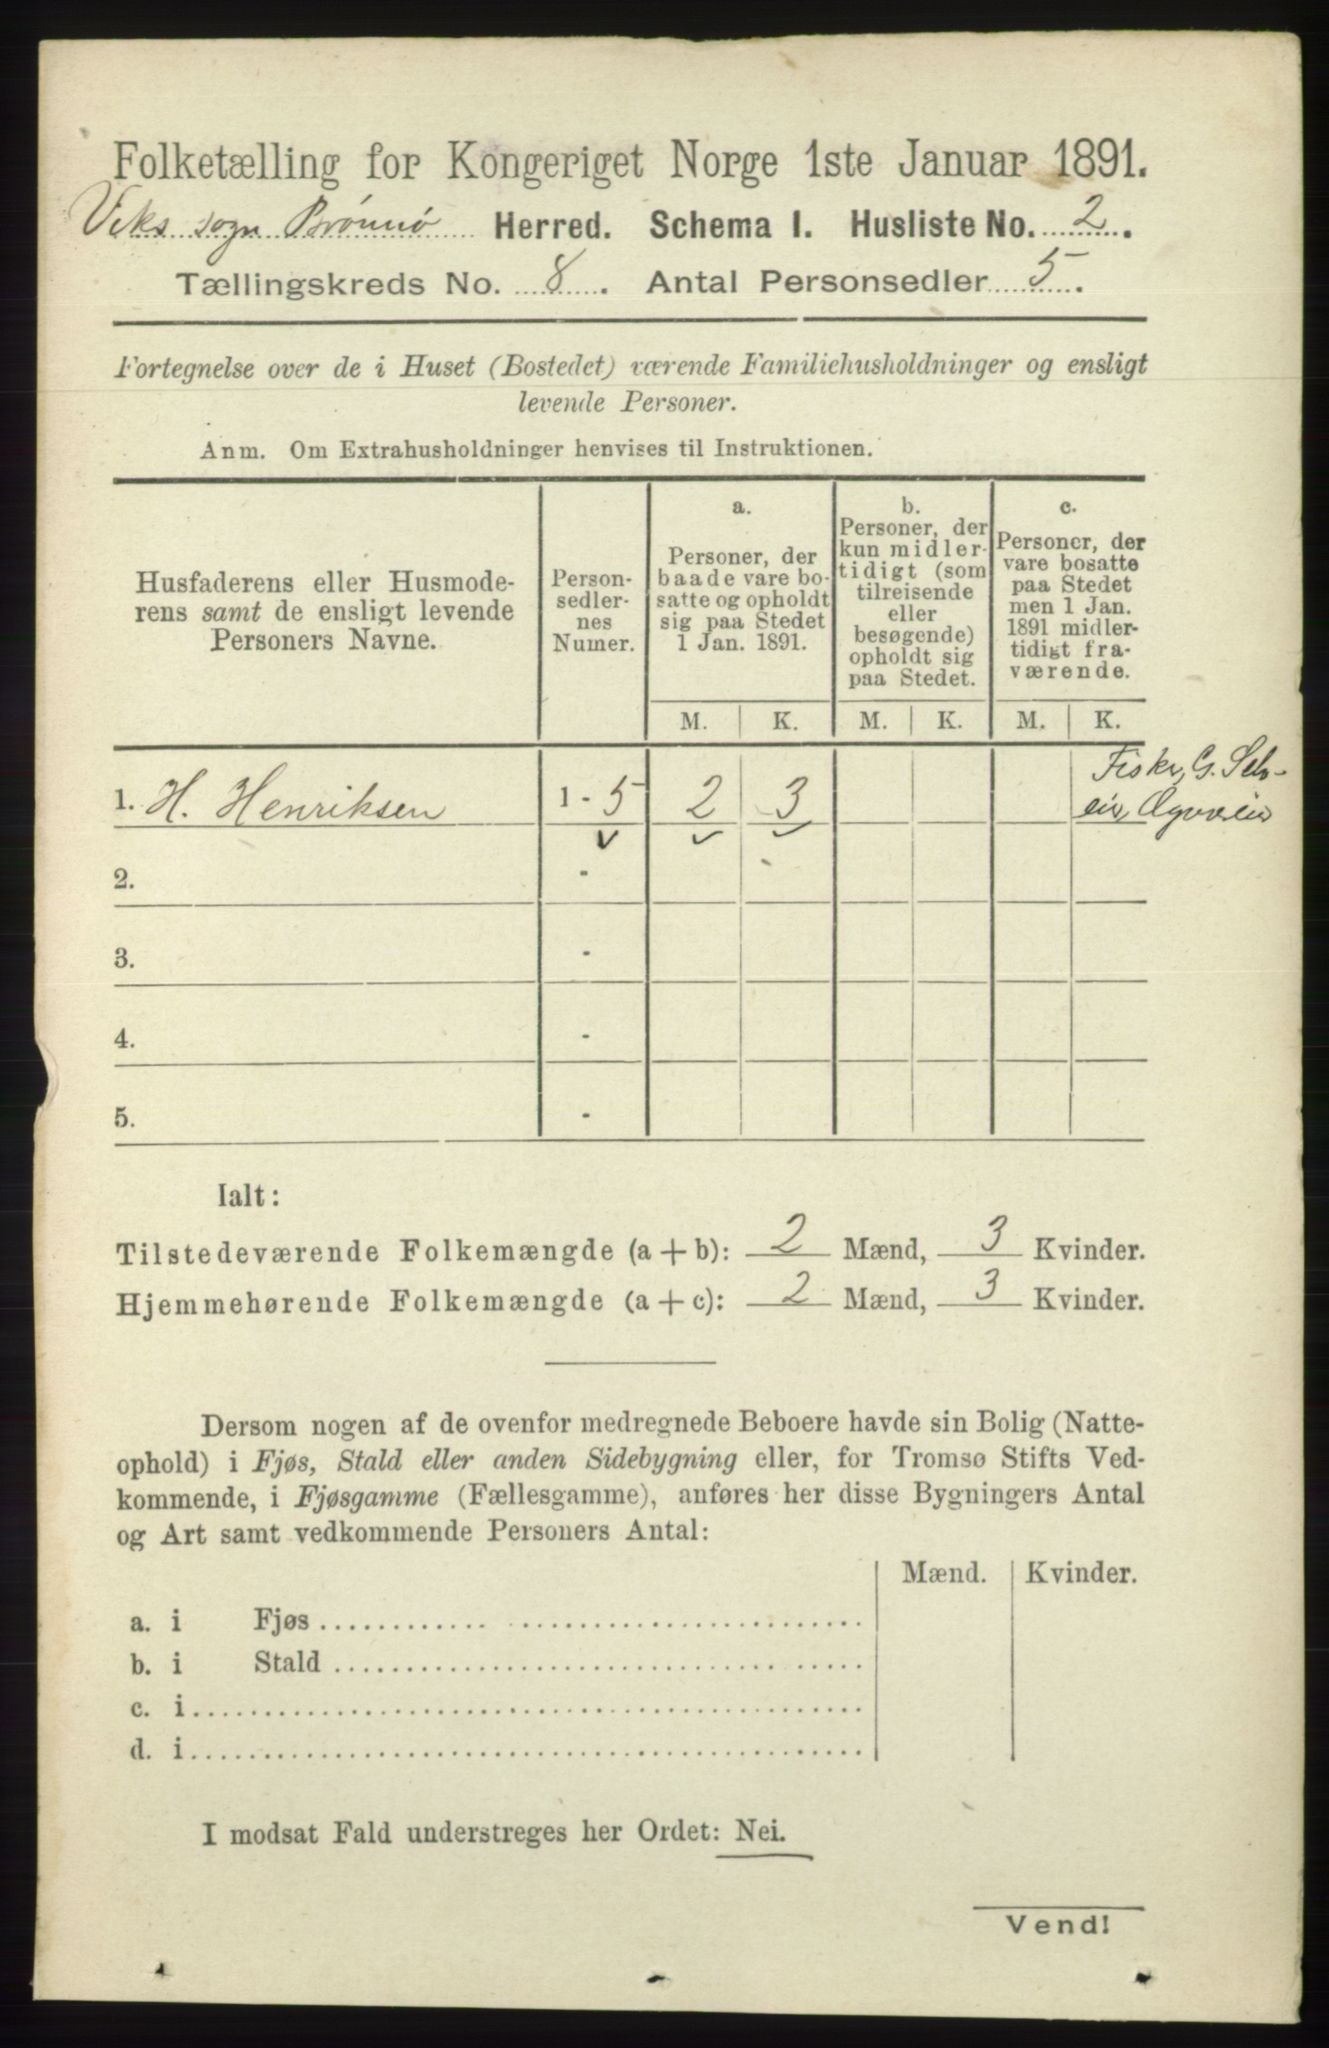 Folketælling for Kongeriget Norge 1ste Januar 1891.
Viks sogn Brønnø Herred. Schema I. Husliste No. 2.
Tællingskreds No. 8. Antal Personsedler 5.
Fortegnelse over de i Huset (Bostedet) værende Familiehusholdninger og ensligt
levende Personer.
Anm. Om Extrahusholdninger henvises til Instruktionen.
Husfaderens eller Husmode-
rens samt de ensligt levende
Personers Navne.
Person-
sedler-
nes
Numer.
a.
Personer, der
baade vare bo-
satte og opholdt
sig paa Stedet
1 Jan. 1891.
b.
Personer, der
kun midler-
tidigt (som
tilreisende
eller
besøgende)
opholdt sig
paa Stedet.
c.
Personer, der
vare bosatte
paa Stedet
men 1 Jan.
1891 midler-
tidigt fra-
værende.
M. K. M. K. M. K.
1. H. Henriksen 1 - 5 2 3
Fisker, G. Selv-
eier
2. -
3. -
4. -
5. -
Ialt:
Tilstedeværende Folkemængde (a + b): 2 Mænd, 3 Kvinder.
Hjemmehørende Folkemængde (a + c): 2 Mænd, 3 Kvinder.
Dersom nogen af de ovenfor medregnede Beboere havde sin Bolig (Natte-
ophold) i Fjøs, Stald eller anden Sidebygning eller, for Tromsø Stifts Ved-
kommende, i Fjøsgamme (Fællesgamme), anføres her disse Bygningers Antal
og Art samt vedkommende Personers Antal:
Mænd. Kvinder.
a. i Fjøs
b. i Stald
c. i
d. i
I modsat Fald understreges her Ordet: Nei.
Vend!